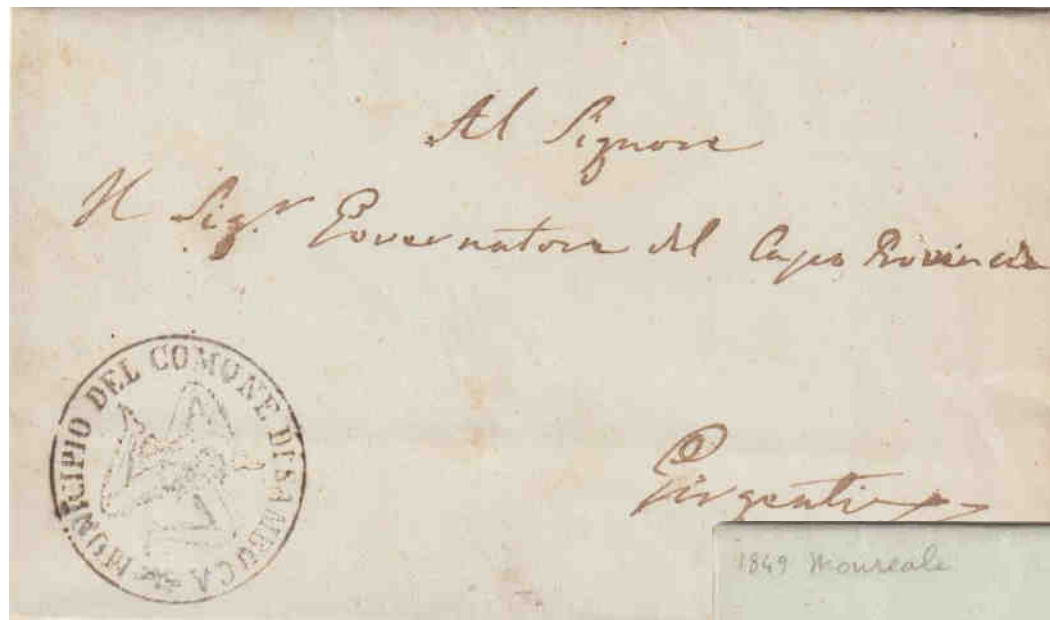 Al Signore
Il Sig.r Governatore del Capo Provincia
MUNICIPIO DEL COMONE DI SAMBUCA
Girgenti
1849 Monreale